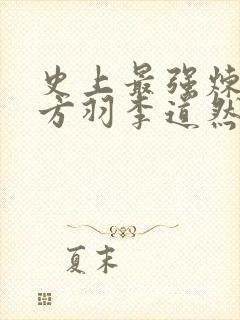 史上最强炼
方羽李道然
夏末